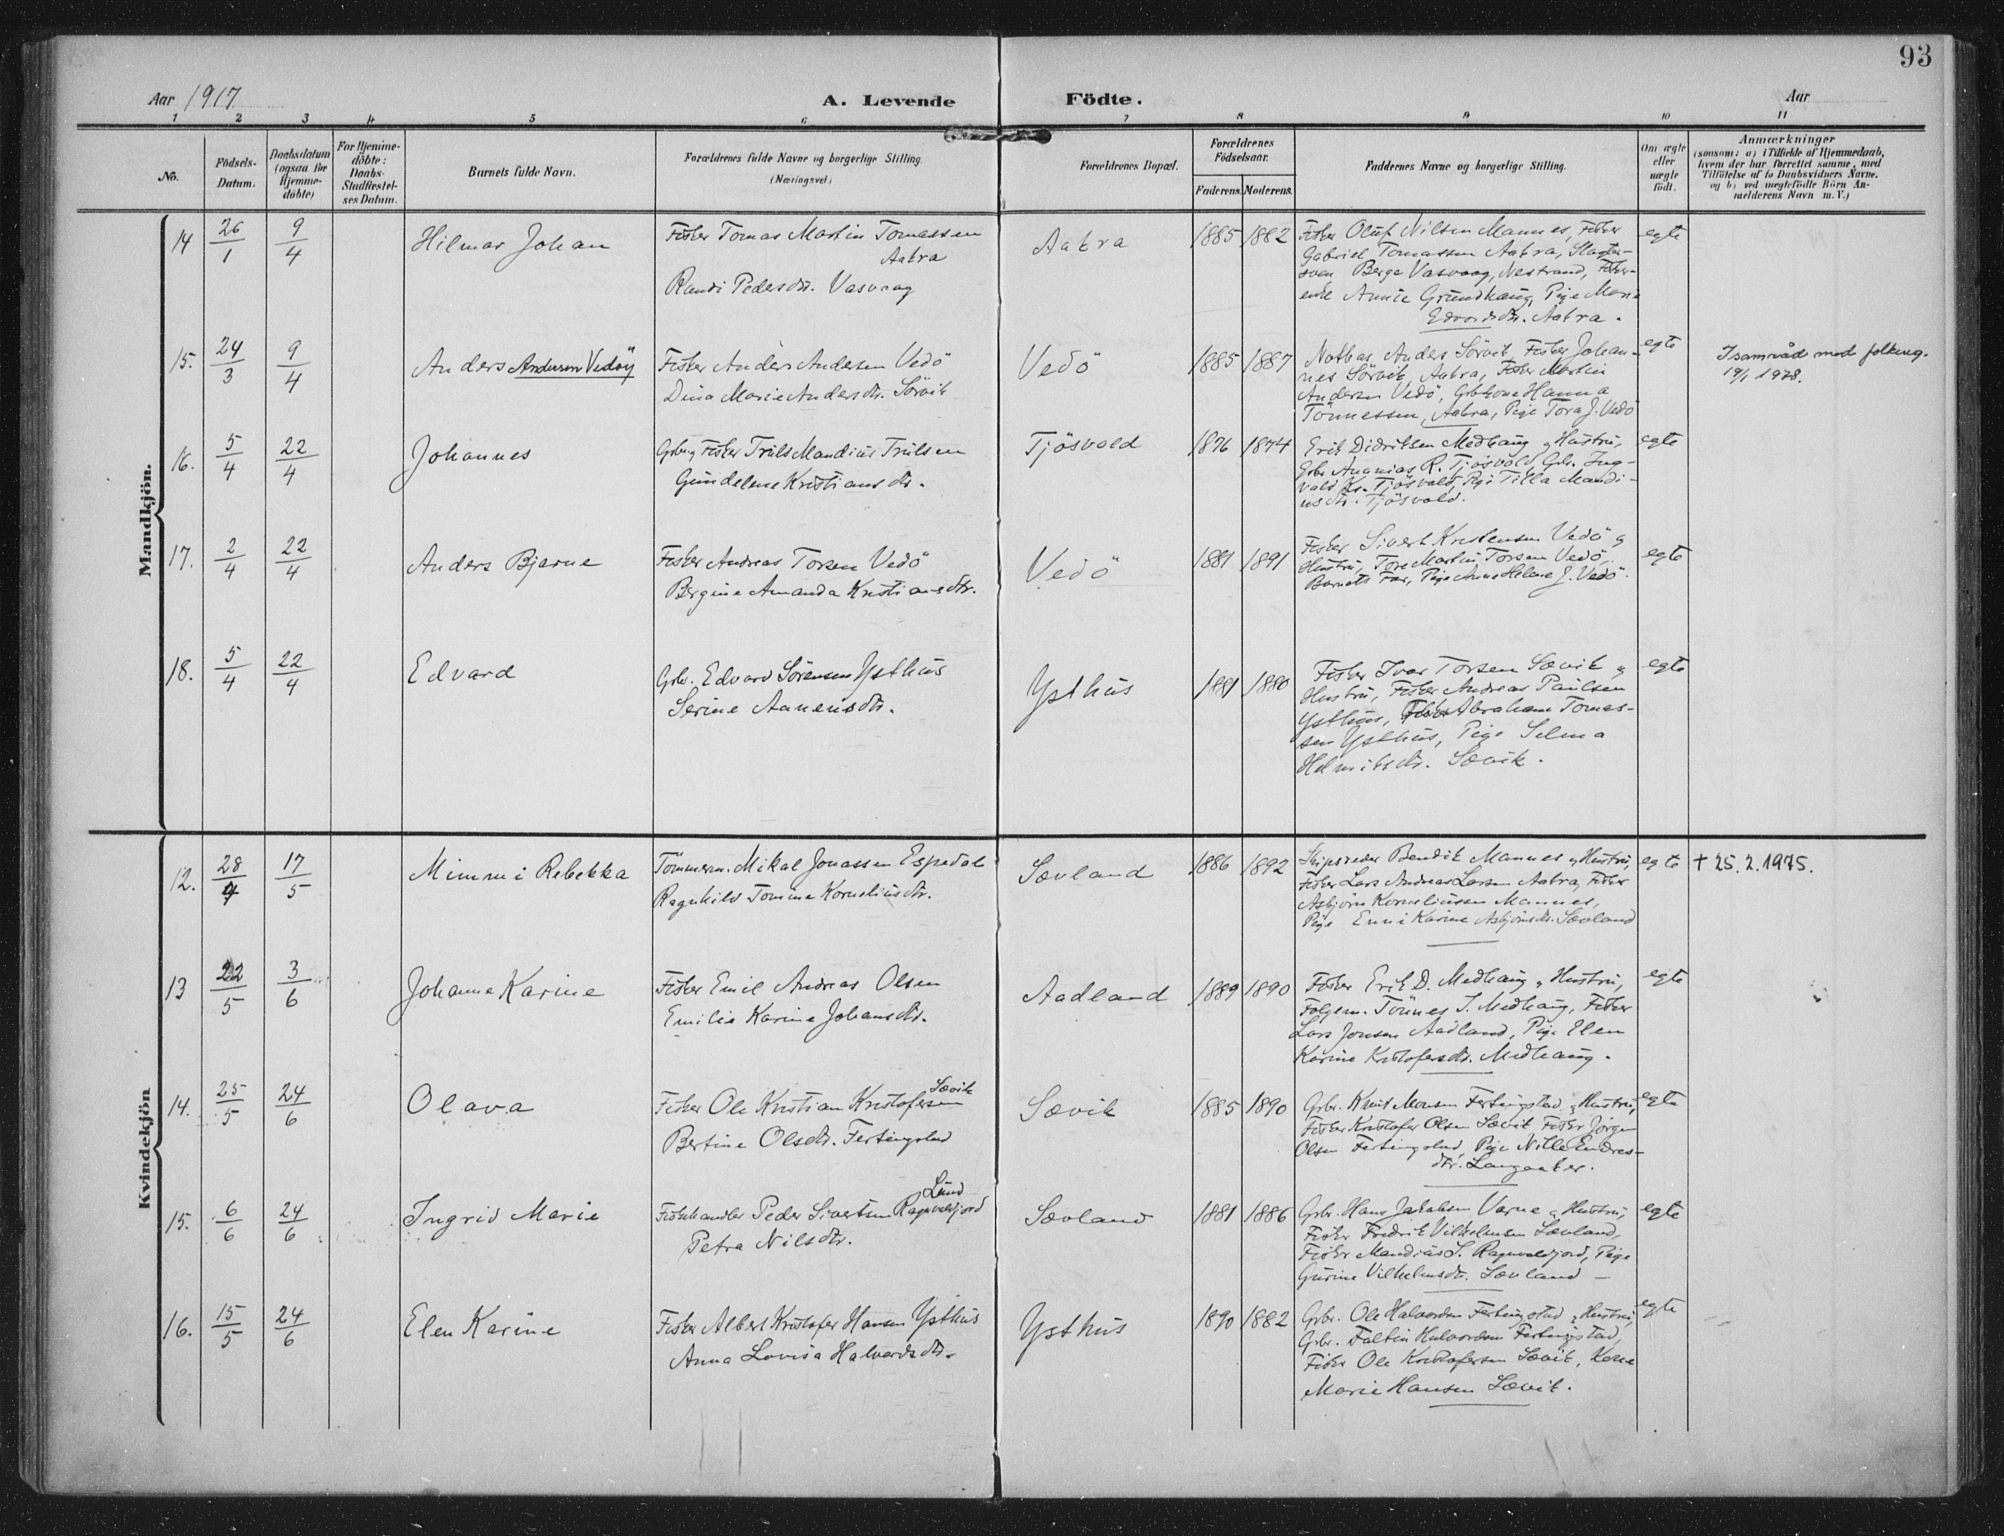 93
Aar 1917
A. Levende Födte.
Aar
1 2 3 4 5 6 7 8 9 10 11
No.
Födsels-Datum.
Daabsdatum (ogsaa for Hjemme-döbte)
For Hjemme-döbte: Daabs-Stadfæstel-ses Datum.
Barnets fulde Navn.
Forældrenes fulde Navne og borgerlige Stilling.
(Næringsvei.)
Forældrenes Bopæl.
Forældrenes Födselsaar.
Faderens. Moderens.
Faddernes Navne og borgerlige Stilling.
Om ægte eller uægte födt.
Anmærkninger
(saasom: a) i Tilfælde af Hjemmedaab,
hvem der har forrettet samme, med
Tilföielse af to Daabsvidners Navne.
og b) ved uægtefödte Börn An-
melderens Navn m. V.)
Mandkjön.
14 26/1 9/4 Hilmar Johan
Fisker Tomas Martin Tomassen
Aakra
Randi Pedersdtr. Vasvaag
Aakra 1885 1882
Fisker Oluf Nilsen Mannes, Fisker
Gabriel Tomassen Aakra, Slagter-
sven Berge Vasvaag, Nestrand, Fisker-
enke Annie Grundhaug, Pige Marie
Edvardsdtr. Aakra.
egte
15. 24/3 9/4 Anders Andersen Vedøy
Fisker Anders Andersen Vedö
Dina Marie Andersdtr. Sörvik
Vedö 1885 1887
Notbas Anders Sörvik, Fisker Johan-
nes Sörvik, Aakra, Fisker Martin
Andersen Vedö, Gbrkone Hanna
Tönnessen, Aakra, Pige Tora J. Vedö
egte
I samråd med folkereg.
19/1 1978.
16. 5/4 22/4 Johannes
Gbr. og Fisker Truls Mandius Trulsen
Gundelene Kristiansdtr.
Tjösvold 1876 1874
Erik Didriksen Medhaug og Hustru,
Gbr. Ananias R. Tjösvold, Gbr. Ing-
vald Kr. Tjösvold, Pige Tilla Mandi-
usdtr. Tjösvold.
egte
17. 2/4 22/4 Anders Bjarne
Fisker Andreas Torsen Vedö
Bergine Amanda Kristiansdtr.
Vedö 1881 1891
Fisker Sivert Kristensen Vedö og
Hustru, Tore Martin Torsen Vedö,
Barnets Far, Pige Anne Helene J. Vedö.
egte
18. 5/4 22/4 Edvard
Gbr. Edvard Sörensen Ysthus
Serine Aanensdtr.
Ysthus 1881 1880
Fisker Ivar Torsen Sævik og
Hustru, Fisker Andreas Paulsen
Ysthus, Fisker Abraham Tomas-
sen Ysthus, Pige Selma
Helmiksdtr. Sævik.
egte
Kvindekjön
12. 28/4 17/5 Mimmi Rebekka
Tömmerm. Mikal Jonassen Espedal
Ragnhild Tomine Korneliusdtr.
Sævland 1886 1892
Skipsreder Bendik Mannes og Hustru,
Fisker Lars Andreas Larsen Aakra, Fisker
Asbjörn Korneliussen Mannes,
Pige Enni Karine Asbjörnsdtr. Sævland
egte
† 25.2.1975.
13 22/5 3/6 Johanne Karine
Fisker Emil Andreas Olsen
Emilie Karine Johansdtr.
Aadland 1889 1890
Fisker Erik D. Medhaug og Hustru,
Folgem. Tönnes I. Medhaug, Fisker
Lars Jonsen Aadland, Pige Elen
Karine Kristofersdtr. Medhaug.
egte
14. 25/5 24/6 Olava
Fisker Ole Kristian Kristofersen Sævik
Bertine Olsdtr. Ferkingstad
Sævik 1885 1890
Gbr. Knut Monsen Ferkingstad og Hustru,
Fisker Kristofer Olsen Sævik, Fisker Jörgen
Olsen Ferkingstad, Pige Nille Endres-
dtr. Langaaker.
egte
15. 6/6 24/6 Ingrid Marie
Fiskehandler Peder Sivertsen Ragnvaldjord Lund
Petra Nilsdtr.
Sævland 1881 1886
Gbr. Hans Jakobsen Varne og Hustru,
Fisker Fredrik Vilhelmsen Sævland,
Fisker Mandius S. Ragnvaldjord, Pige
Gurine Vilhelmsdtr. Sævland
egte
16. 15/5 24/6 Elen Karine
Fisker Albert Kristofer Hansen Ysthus
Anna Lovisa Halvardsdtr.
Ysthus 1890 1882
Gbr. Ole Halvorsen Ferkingstad og Hustru,
Gbr. Faltin Halvorsen Ferkingstad,
Fisker Ole Kristofersen Sævik, Kone
Marie Hansen Sævik.
egte